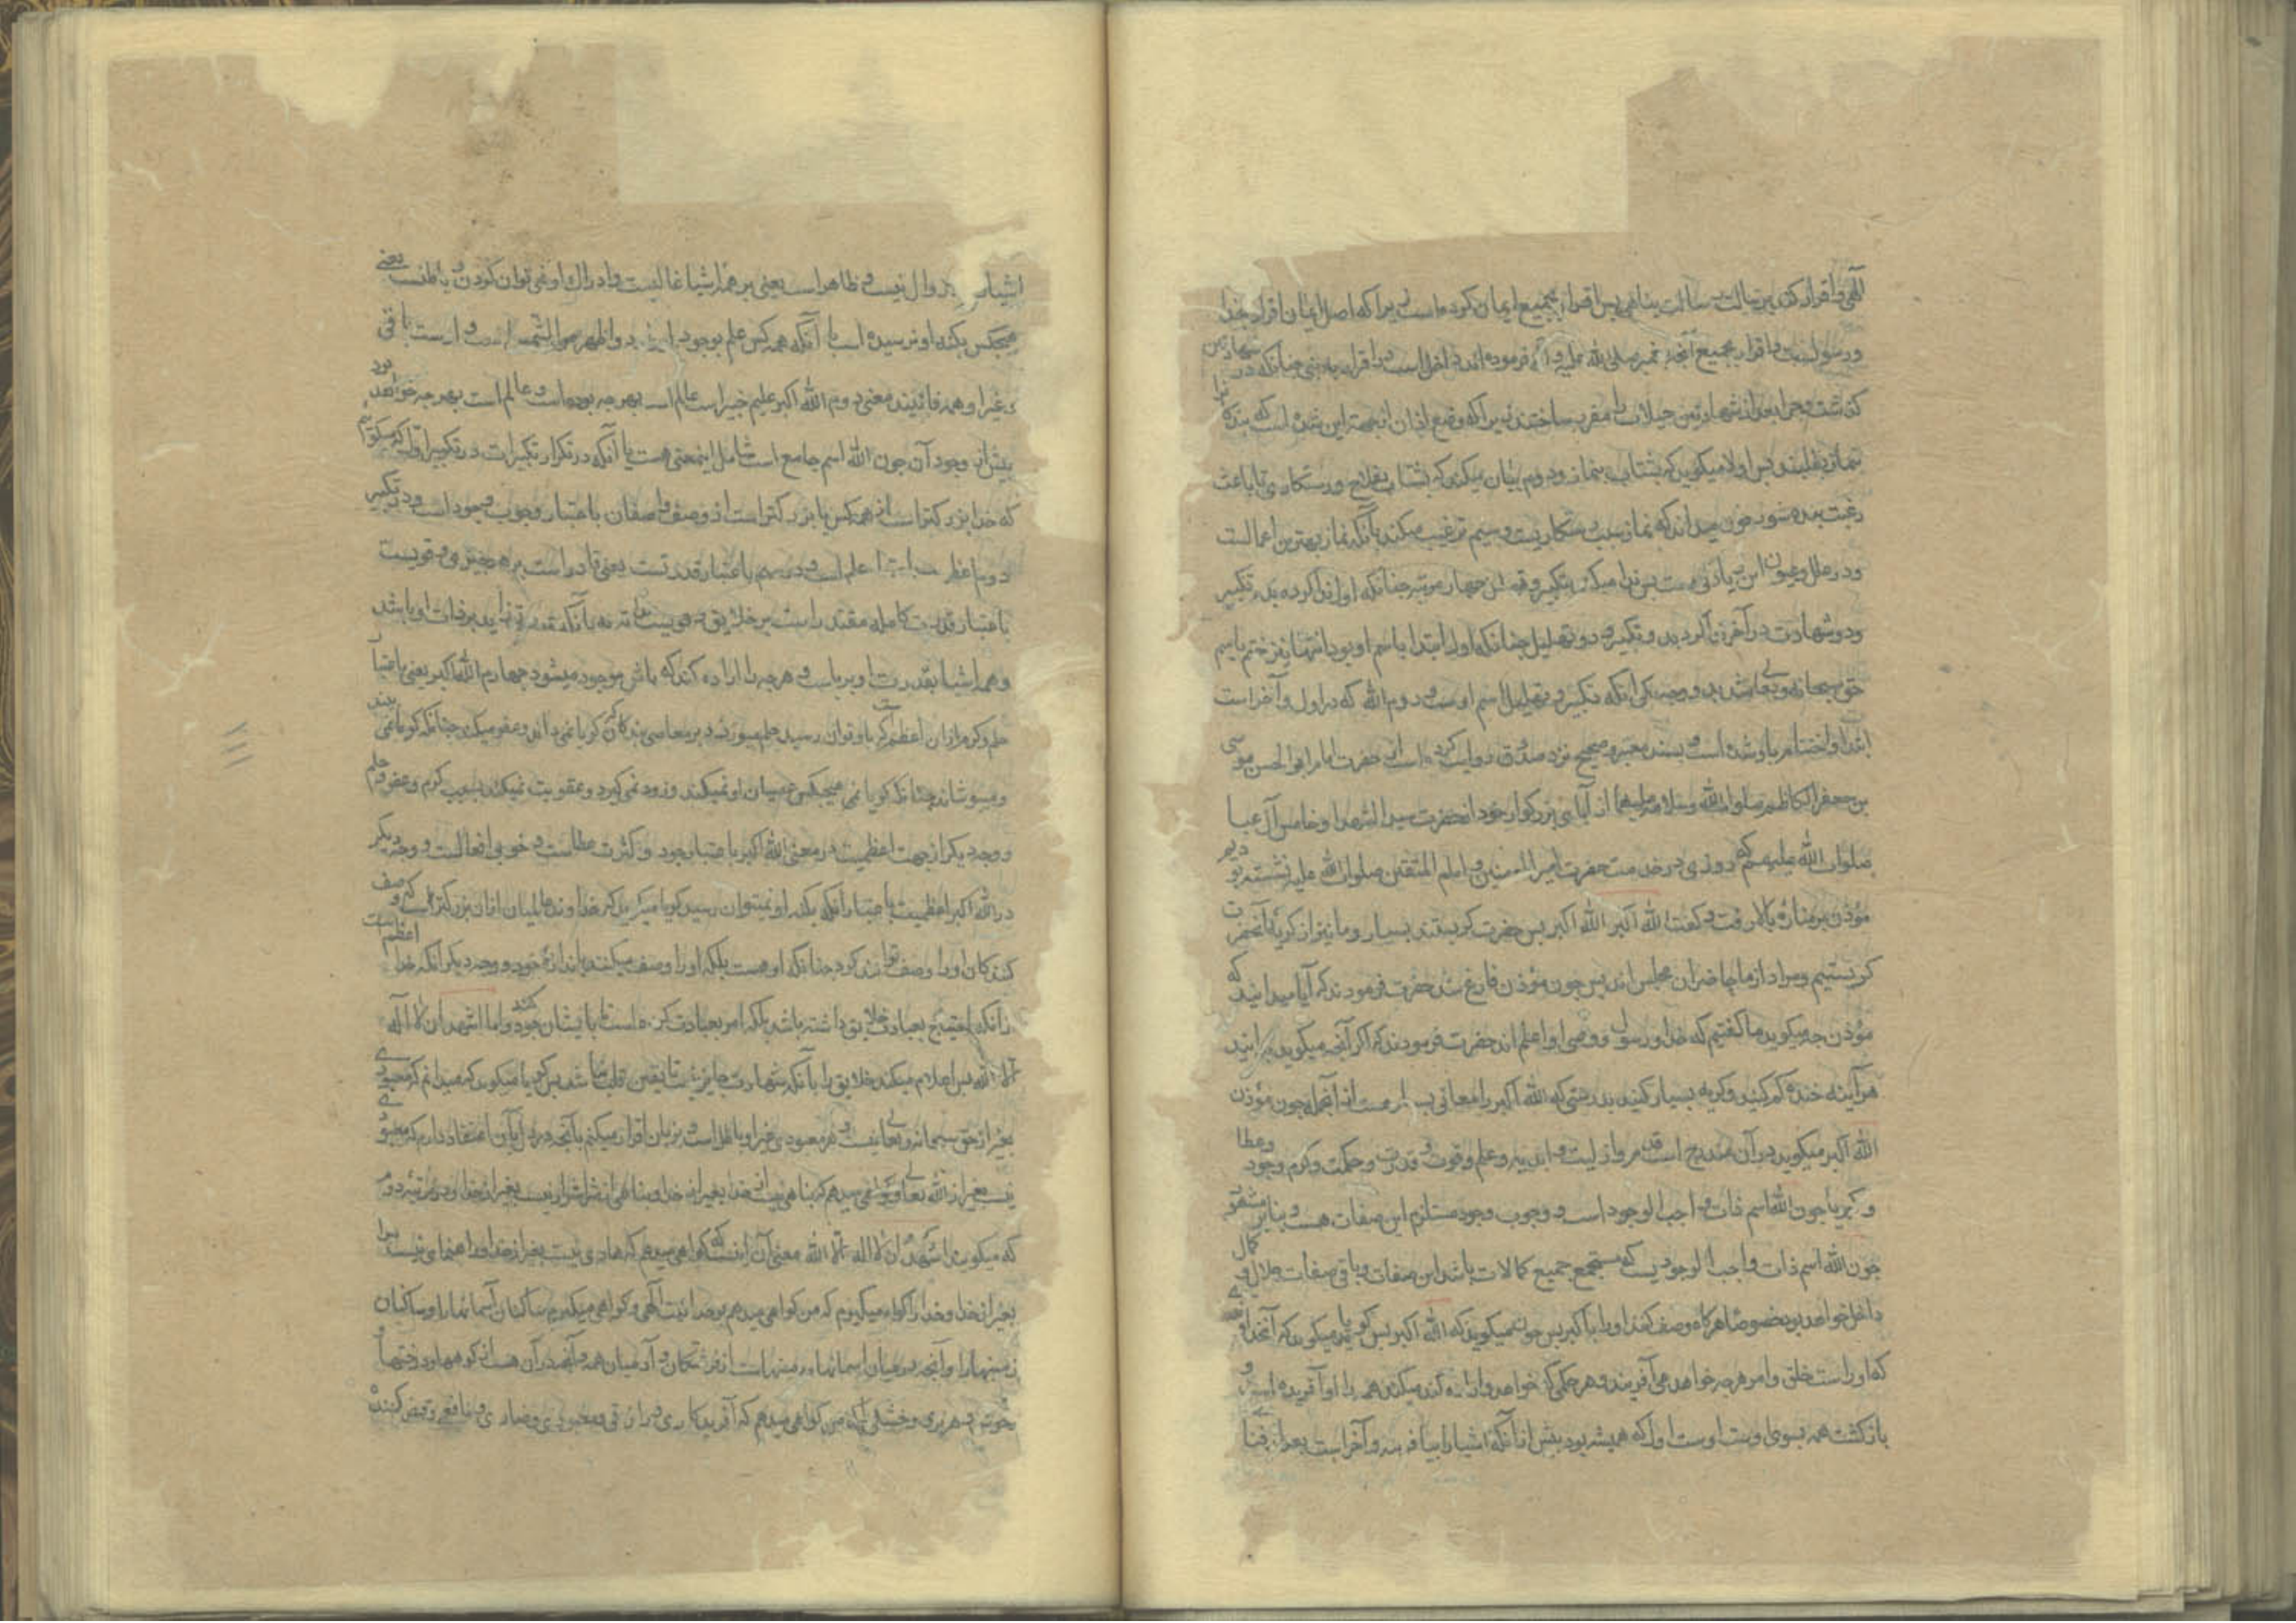 الهی و اقرار کند برسالت رسالت پناهی پس اقرار بجمیع ایمان کرده است زیرا که اصل ایمان اقرار بخدا
و رسولست و اقرار بجمیع آنچه پیغمبر صلی الله علیه و آله فرموده‌اند داخل است در اقرار به نبی چنانکه در شهادتین
کذشت و چرا بعد از شهادتین حیعلات را مقرر ساختند زیرا که وضع اذان از جهة این شده است که بندکانرا
بنماز بطلبند پس اولا میکویند که بشتاب بنماز و دوم بیان میکند که بشتاب بفلاح و رستکاری تا باعث
رغبت بنده شود چون میداند که نماز سبب رستکاریست و سیم ترغیب میکند بآنکه نماز بهترین اعمالست
و در علل و عیون این زیادتی هست پس ندا میکند بتکبیر چهار مرتبه چنانکه اول ندا کرده بد تکبیر
و دو شهادت در آخر زیاد کردند دو تکبیر و دو تهلیل چنانکه اول ابتدا باسم او بود انتها نیز ختم باسم
حق سبحانه و تعالی شده باشد و وجه دیکر آنکه تکبیر و تهلیل اسم اوست و دوم الله که در اول و آخر است
ابتدا و اختتام باو شده است و بسند معتبر و صحیح نزد صدوق روایت کرده است از حضرت امام ابو الحسن موسی
بن جعفر الکاظم صلوات الله و سلامه علیهما از آبای بزرکوار خود از حضرت سید الشهدا و خامس آل عبا
صلوات الله علیهم که روزی در خدمت حضرت امیر المؤمنین و امام المتقین صلوات الله علیه نشسته بودیم
مؤذن بر مناره بالا رفت و کفت الله اکبر الله اکبر پس حضرت کریستند بسیار و ما نیز از کریه آنحضرت
کریستیم و مراد از ما حاضران مجلس‌اند پس چون مؤذن فارغ شد حضرت فرمودند که آیا میدانید که
مؤذن چه میکوید ما کفتیم که خدا و رسول و وصی او اعلم‌اند حضرت فرمودند که اکر آنچه میکوید بدانید
هرآینه خنده کم کنید و کریه بسیار کنید بدرستی که الله اکبر را معانی بسیار هست از آنجمله چون مؤذن
الله اکبر میکوید در آن مندرج است قدم و ازلیت و ابدیه و علم و قوت و قدرت و حکمت و کرم وجود و عطا
و کبریا چون الله اسم ذات واجب الوجود است و وجوب وجود مستلزم این صفات هست و بنابر مشهور
چون الله اسم ذات واجب الوجودیست که مستجمع جمیع کمالات باشد این صفات و باقی صفات جلال و کمال
داخل خواهد بود خصوصا هرکاه وصف کند او را باکبر پس چون میکوید که الله اکبر پس کویا میکوید که آنخداوندی
که او راست خلق و امر هرچه خواهد می آفریند و هر حکمی که خواهد و اراده کند میکند همه را او آفریده است و
بازکشت همه بسوی اوست اوست اول که همیشه بود پیش از آنکه اشیا را بیافریند و آخر است بعد از فنا
اشیا زوال نیست و ظاهر است یعنی بر همه اشیا غالبست و ادراک او نمی توان کردن و باطنست یعنی
هیچکس بکنه او نرسیده است با آنکه همه کس علم بوجود او دارند و اظهر من الشمس است و اوست باقی
و غیر او همه فانیند معنی دوم الله اکبر علیم خبیر است عالم است بهرچه بوده است و عالم است بهرچه خواهد بود
پیش از وجود آن چون الله اسم جامع است شامل اینمعنی هست با آنکه در تکرار تکبیرات در تکبیر اول که میکویم
که خدا بزرکتر است از همه کس یا بزرکتر است از وصف واصفان باعتبار وجوب وجود است و در تکبیر
دوم اعظم است باعتبار علم است و در سیم باعتبار قدرتست یعنی قادر است بر هر چیزی و قویست
باعتبار قدرت کامله مقتدر است بر خلایق و قویست بذاته نه بآنکه قدرت زاید بر ذات او باشد
و همه اشیا بقدرت او برپاست و هرچه را اراده کند که باش موجود میشود چهارم الله اکبر یعنی باعتبار
حلم و کرم از آن اعظم است که باو توان رسید حلم میورزد بر معاصی بندکان که کویا نمی داند و عفو میکند چنانکه کویا نمی بیند
و میپوشاند چنانکه کویا نمی هیچکس عصیان او نمیکند و زود نمی کیرد و عقوبت نمیکند بسبب کرم و عفو و حلم
و وجه دیکر از جهت اعظمیت در معنی الله اکبر باعتبار جود و کثرت عطاست و خوبی افعالست و وجه دیکر
در الله اکبر اعظمیت باعتبار آنکه بکنه او نمیتوان رسید کویا میکوید که خداوند عالمیان از آن بزرکتر است که وصف
کنندکان او را وصف توانند کرد چنانکه او هست بلکه او را وصف میکنند باندازه خود و وجه دیکر آنکه خدا اعظم است
از آنکه احتیاج بعبادت خلایق داشته باشد بلکه امر بعبادت کرده است تا بایشان جود کند و اما اشهد ان لا اله
الا الله پس اعلام میکند خلایق را بآنکه شهادت جایز نیست تا یقین قلب نباشد پس کویا میکوید که میدانم که معبودی
بغیر از حق سبحانه و تعالی نیست و هر معبودی غیر او باطل است و بزبان اقرار میکنم بآنچه در دل بآن اعتقاد دارم که معبودی
نیست بغیر از الله تعالی و کواهی میدهم که پناهی نیست از خدا بغیر از خدا و پناهی از شر اشرار نیست بغیر از خدا و در مرتبه دوم
که میکوید اشهد ان لا اله الا الله معنی آن اینست که کواهی میدهم که هادی نیست بغیر از خدا و راهنمای نیست مرا
بغیر از خدا و خدا را کواه میکیرم که من کواهی میدهم بوحدانیت الهی و کواهی میکیرم ساکنان آسمانها را و ساکنان
زمینها را و آنچه در میان آسمانها و زمینهاست از فرشتکان و آدمیان همه و آنچه در آن هست از کوهها و درختها و
وحوش و هر تری و خشکی که من کواهی میدهم که آفریدکاری و رازقی و معبودی و ضاری و نافعی و قبض کننده